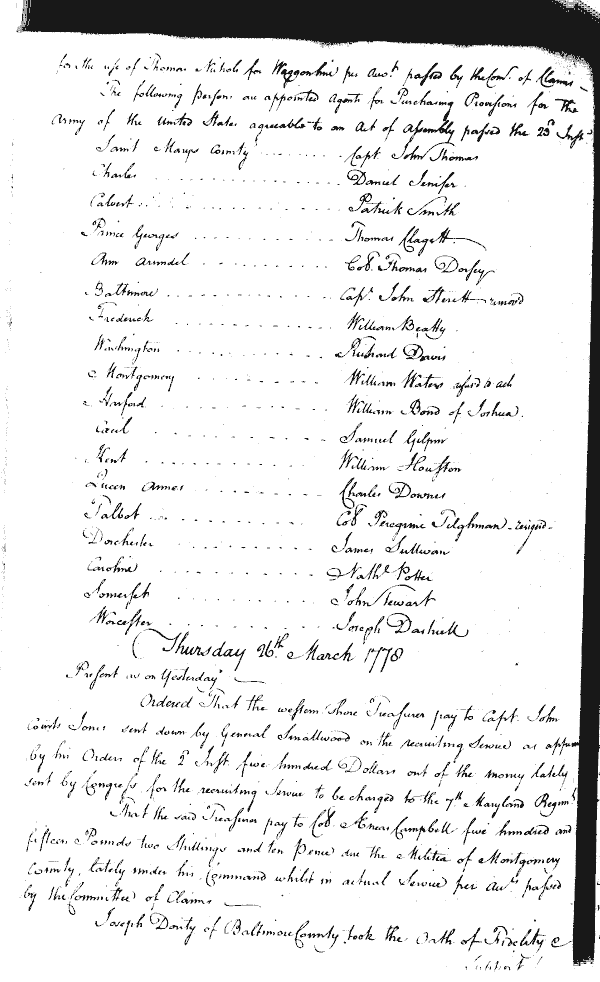 for the use of Thomas Nichols for Waggonhire per Acc.t passed by the Com.e of Claims –
The following Persons are appointed Agents for Purchasing Provisions for the
Army of the United States agreeable to an Act of Assembly passed the 23.d Inst.
Saint Marys County .......... Capt John Thomas
Charles .......... Daniel Jenifer
Calvert .......... Patrick Smith
Prince Georges .......... Thomas Clagett
Ann Arundel .......... Col.o Thomas Dorsey
Baltimore .......... Cap.t John Sterett
Frederick .......... William Beatty
Washington .......... Richard Davis
Montgomery .......... William Waters refused to act
Harford .......... William Bond of Joshua
Cæcil .......... Samuel Gilpin
Kent .......... William Houston
Queen Annes .......... Charles Downes
Talbot .......... Col.o Peregrine Tilghman – resigned –
Dorchester .......... James Sullivan
Caroline .......... Nath.l Potter
Somerset .......... John Stewart
Worcester .......... Joseph Dashiell
Thursday 26.th March 1778
Present as on Yesterday
Ordered That the western Shore Treasurer pay to Capt. John
Courts Jones sent down by General Smallwood on the recruiting Service as appears
by his Orders of the 2.d Inst five hundred Dollars out of the money lately
sent by Congress for the recruiting Service to be charged to the 7.th Maryland Regim.t
That the said Treasurer pay to Col.o Æneas Campbell five hundred and
fifteen Pounds two Shillings and ten Pence due the Militia of Montgomery
County, lately under his Command whilst in actual Service per Acc.t passed
by the Committee of Claims
Joseph Donty of Baltimore County took the Oath of Fidelity &
Support